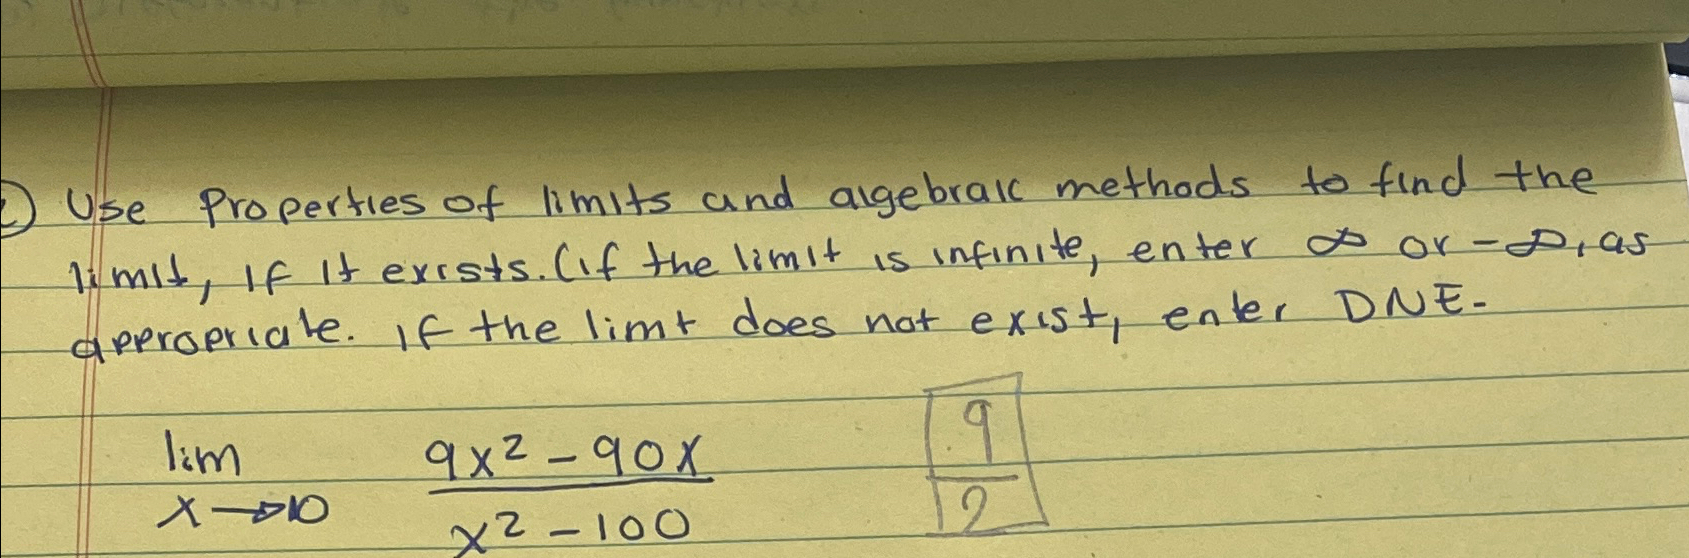 Use Properties of limits and algebraic methods to find the
limit, if it exists. (if the limit is infinite, enter ∞ or -∞, as
appropriate. If the limt does not exist, enter DNE.
lim x→10 (9x² - 90x)/(x² - 100) 9/2